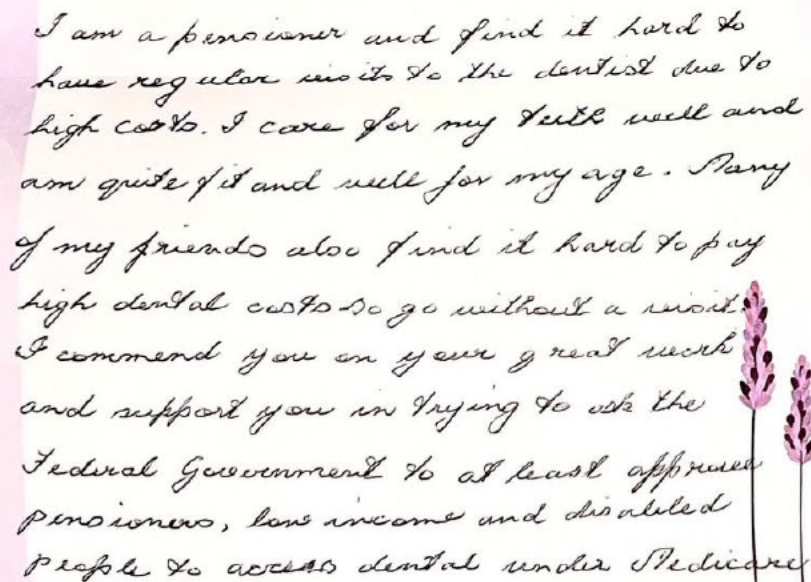 I am a pensioner and find it hard to
have regular visits to the dentist due to
high costs. I care for my teeth well and
am quite fit and well for my age. Many
of my friends also find it hard to pay
high dental costs so go without a visit.
I commend you on your great work
and support you in trying to ask the
Federal Government to at least approve
pensioners, low income and disabled
people to access dental under Medicare